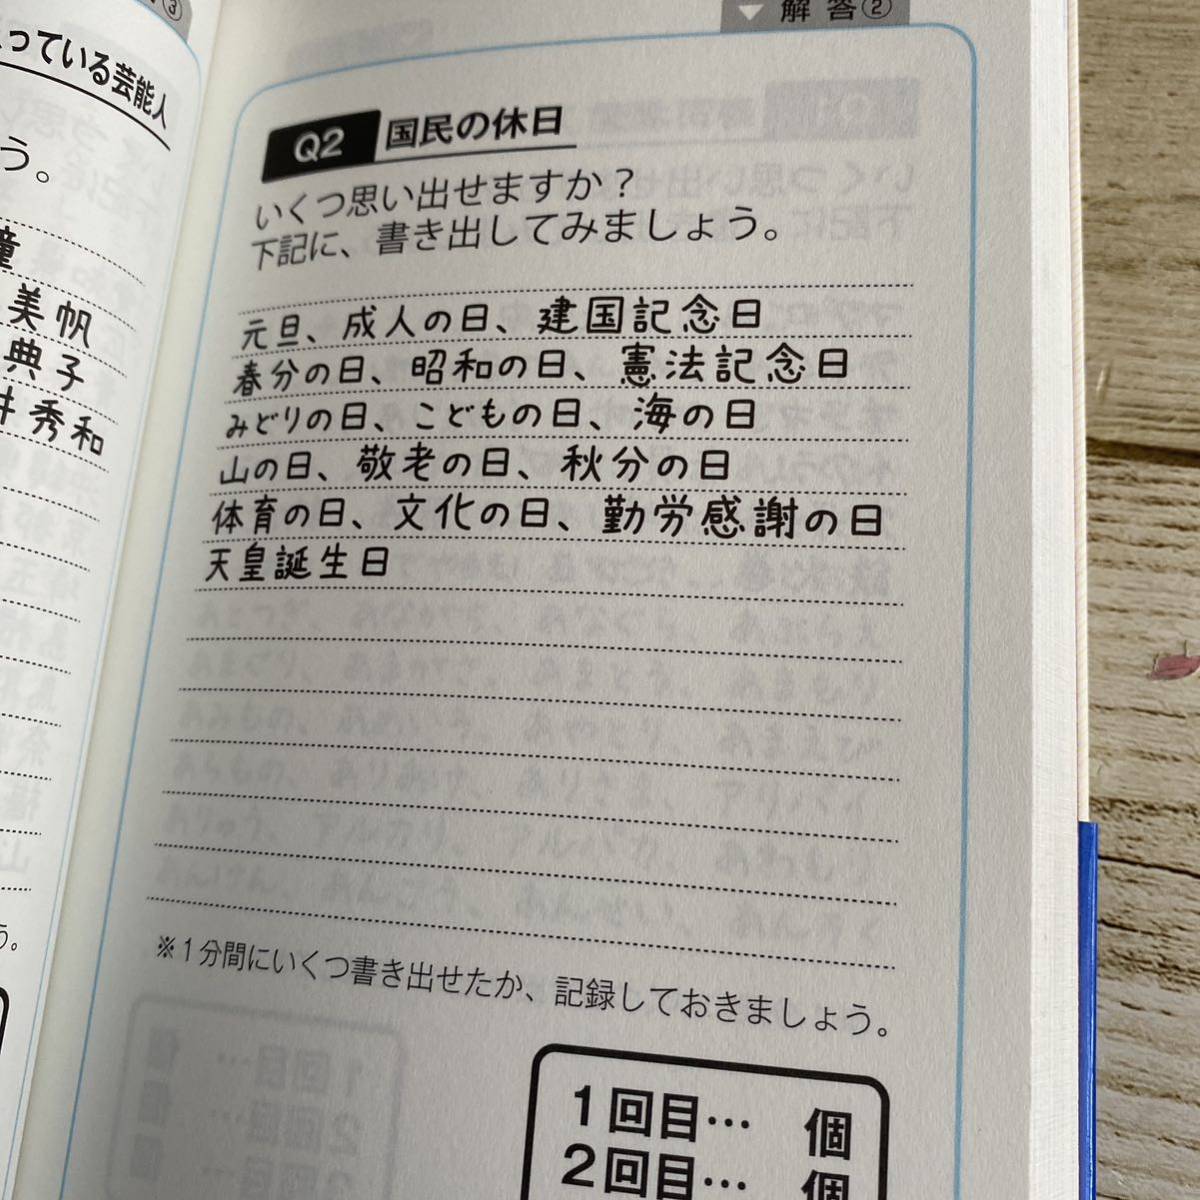 ③
っている芸能人
う。
美帆
典子
井秀和
う。
▼解答②
Q2 国民の休日
いくつ思い出せますか？
下記に、書き出してみましょう。
元旦、成人の日、建国記念日
春分の日、昭和の日、憲法記念日
みどりの日、こどもの日、海の日
山の日、敬老の日、秋分の日
体育の日、文化の日、勤労感謝の日
天皇誕生日
※1分間にいくつ書き出せたか、記録しておきましょう。
1回目… 個
2回目… 個